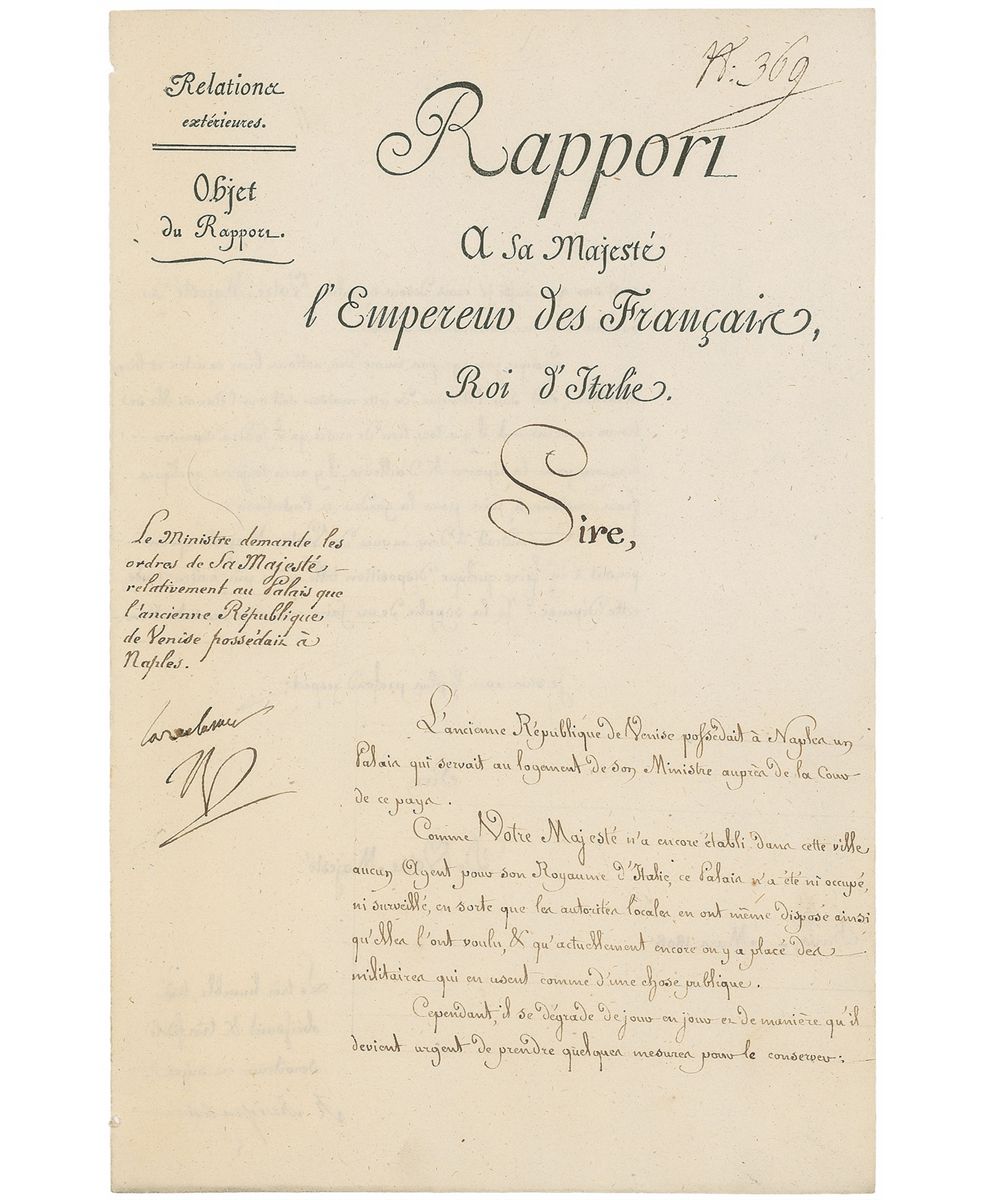 N.° 369
Relations
extérieures.
Objet
du Rapport.
Rapport
A Sa Majesté
l'Empereur des Français,
Roi d'Italie.
Sire,
Le Ministre demande les
ordres de Sa Majesté
relativement au Palais que
l'ancienne République
de Venise possédait à
Naples.
L'ancienne République de Venise possédait à Naples un
Palais qui servait au logement de son Ministre auprès de la Cour
de ce pays.
Comme Votre Majesté n'a encore établi dans cette ville
aucun Agent pour son Royaume d'Italie, ce Palais n'a été ni occupé,
ni surveillé, en sorte que les autorités locales en ont même disposé ainsi
qu'elles l'ont voulu, & qu'actuellement encore on y a placé des
militaires qui en usent comme d'une chose publique.
Cependant, il se dégrade de jour en jour et de manière qu'il
devient urgent de prendre quelques mesures pour le conserver: